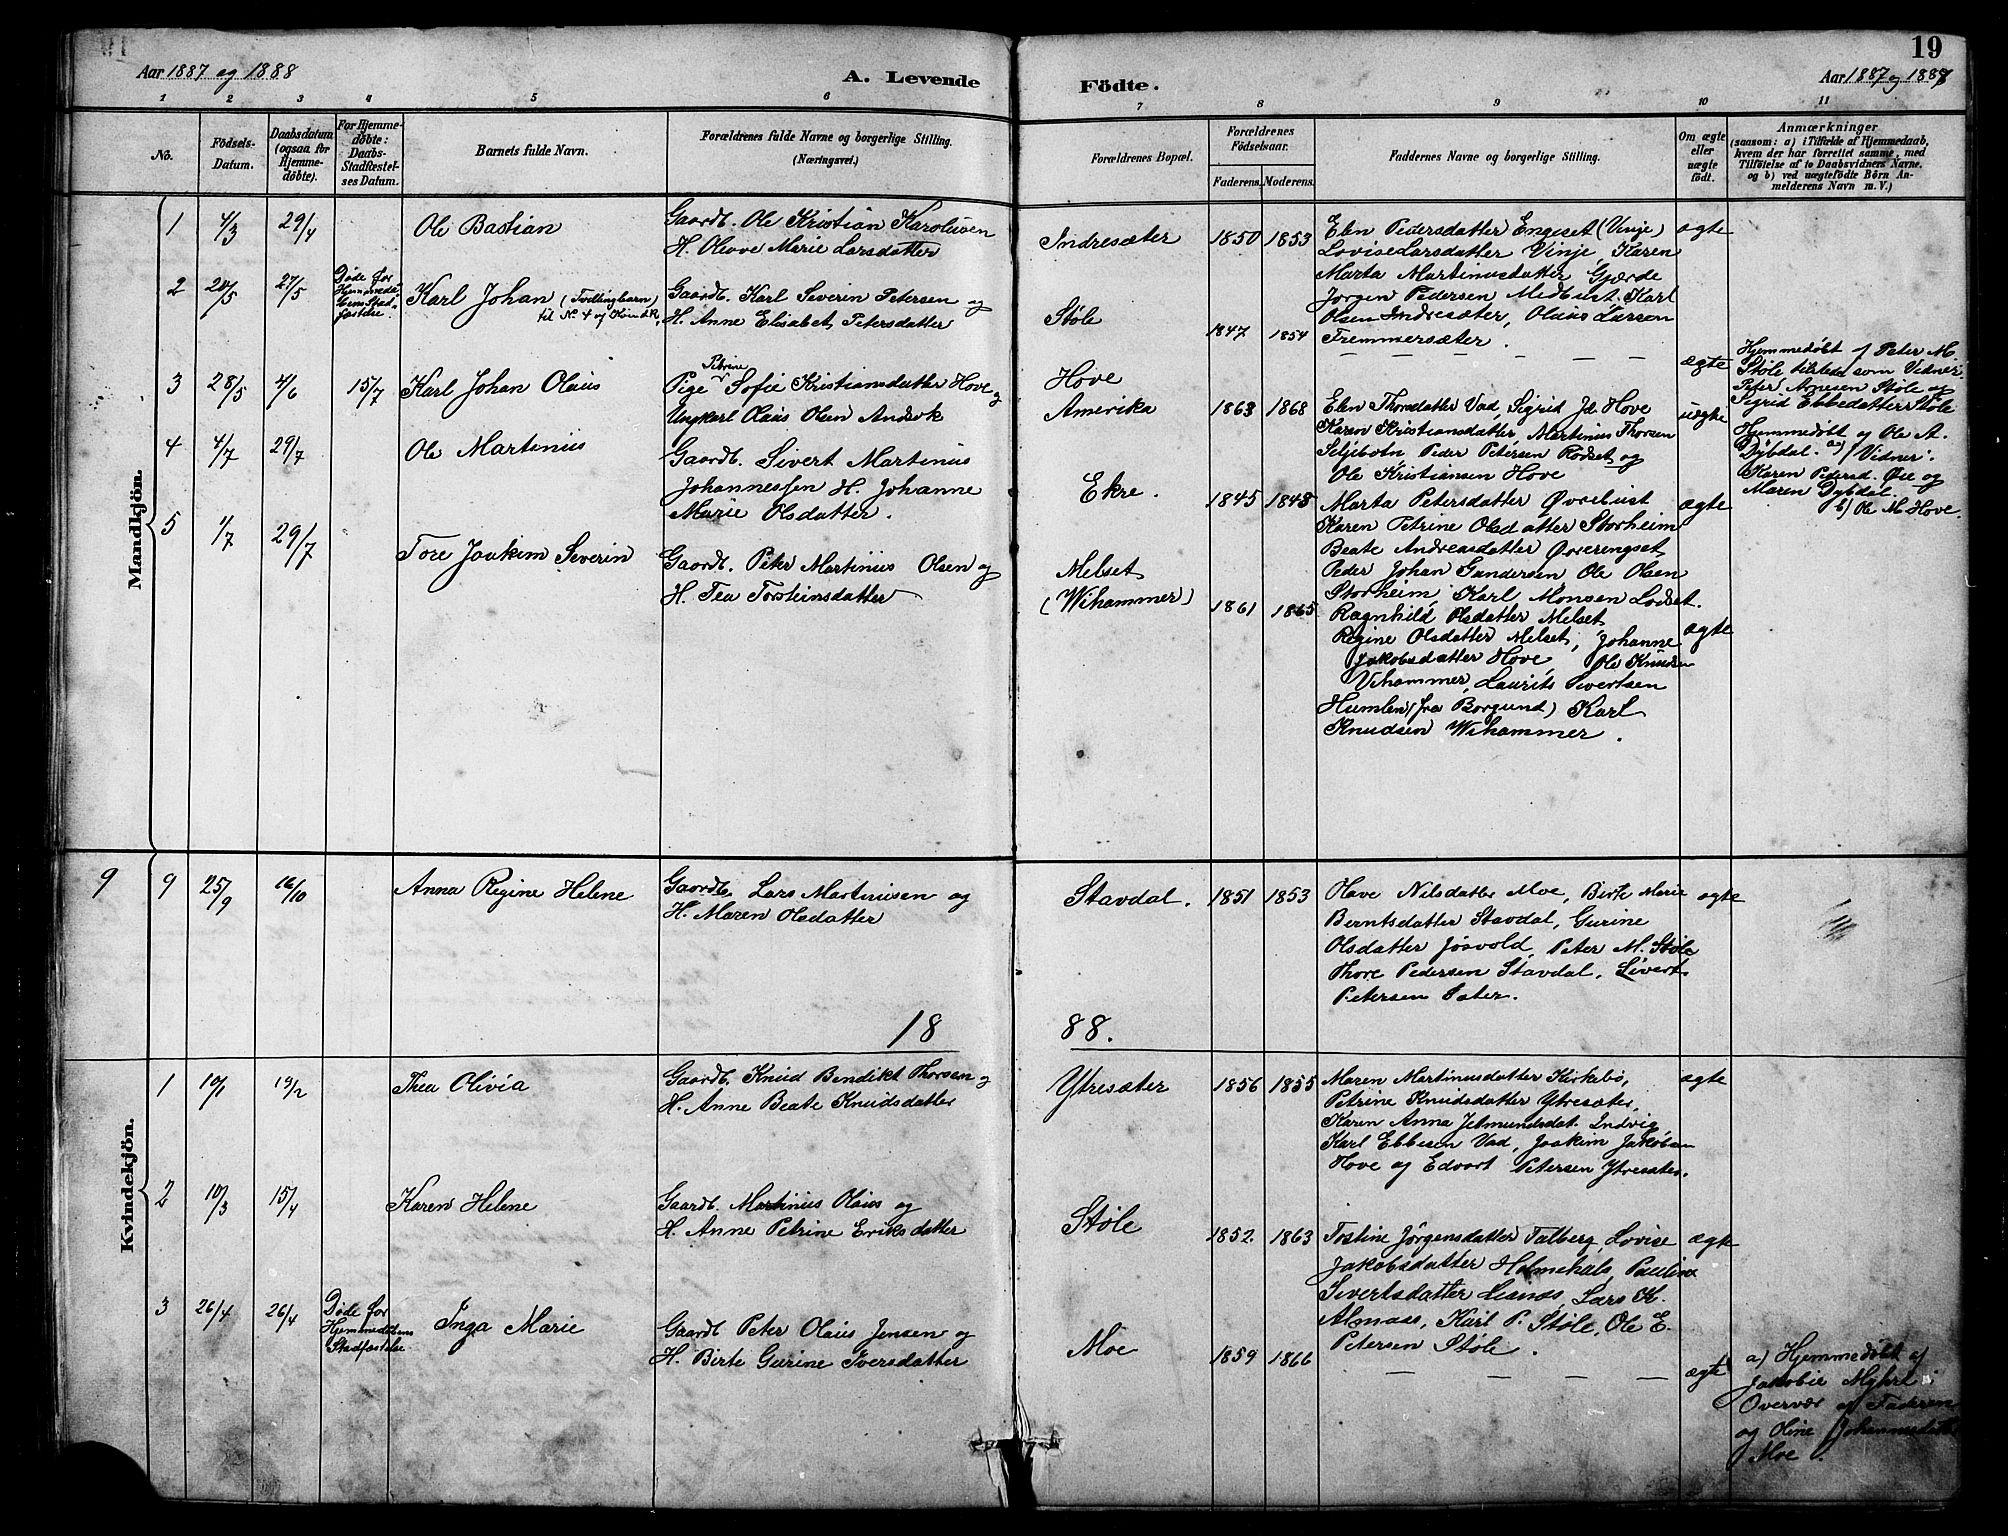 Aar 1887 og 1888
A. Levende
Födte.
19
Aar 1887 og 1888
1 2 3 4 5 6 7 8 9 10 11
No.
Födsels-
Datum.
Daabsdatum
(ogsaa for
Hjemme-
döbte).
For Hjemme-
döbte:
Daabs-
Stadfæstel-
ses Datum.
Barnets fulde Navn.
Forældrenes fulde Navne og borgerlige Stilling.
(Næringsvei.)
Forældrenes Bopæl.
Forældrenes
Födselsaar.
Faderens. Moderens.
Faddernes Navne og borgerlige Stilling.
Om ægte
eller
uægte
födt.
Anmærkninger
(saasom: a) i Tilfælde af Hjemmedaab,
hvem der har forrettet samme, med
Tilföielse af to Daabsvidners Navne.
og b) ved uægtefödte Börn An-
melderens Navn m. V.)
Mandkjön.
1 4/3 29/4
Ole Bastian
Gaardb. Ole Kristian Karolusen
H. Olove Marie Larsdatter
Indresæter
1850 1853
Elen Pedersdatter Engeset (Vinje)
Lovise Larsdatter Vinje, Karen
Marta Martinusdatter Gjærde
Jørgen Pedersen Medbust. Karl
Olsen Indresæter, Olaus Larsen
Fremmersæter.
ægte
2 24/5 27/5
Døde før
Hjemmedø-
bens Stad-
fæstelse."
Karl Johan (Tvillingbarn)
til No 4 af Kvindk.
Gaardb. Karl Severin Petersen og
H. Anne Elisabet Petersdatter
Støle
1847 1854
— — — — — —
ægte
Hjemmedøbt af Peter M.
Støle tilstede som Vidner
Peter Arnesen Støle og
Sigrid Ebbedatter Støle
3 28/5 4/6 15/7
Karl Johan Olaus
Petrine
Pige Sofie Kristiansdatter Hove og
Ungkarl Olaus Olsen Andevk
Hove
Amerika
1863 1868
Elen Thoresdatter Vad, Sigrid Jd. Hove
Karen Kristiansdatter, Martinus Thorsen
Seljebotn Peder Petersen Rødset og
Ole Kristiansen Hove
uægte
Hjemmedøbt af Ole A.
Dybdal. a) Vidner:
Karen Pedersd. Øie og
Maren Dybdal.
b) Ole M. Hove.
4 4/7 29/7
Ole Martinus
Gaardb. Sivert Martinus
Johannessen H. Johanne
Marie Olsdatter.
Ekre.
1845 1848
Marta Petersdatter Øvrebust
Karen Petrine Olsdatter Storheim
Beate Andreasdatter Øvreringset
Peder Johan Gundersen Ole Olsen
Storheim Karl Monsen Lodset.
ægte
5 1/7 29/7
Tore Joakim Severin
Gaardb. Peter Martinus Olsen og
H. Tea Torsteinsdatter
Melset
(Wihammer)
1861 1865
Ragnhild Olsdatter Melset
Regine Olsdatter Melset, Johanne
Jakobsdatter Hove, Ole Knudsen
Vihammer, Laurits Sivertsen
Humlen (fra Borgund) Karl
Knudsen Wihammer.
ægte
9 9 25/9 16/10
Anna Regine Helene
Gaardb. Lars Martinusen og
H. Maren Olsdatter
Stavdal.
1851 1853
Olave Nilsdatter Moe, Birte Marie
Berntsdatter Stavdal, Gurine
Olsdatter Jøsvold, Peter M. Støle
Thore Pedersen Stavdal, Sivert
Petersen Sæter.
ægte
18 88.
Kvindekjön.
1 10/1 19/2
Thea Olivia
Gaardb. Knud Bendikt Thorsen og
H. Anne Beate Knudsdatter
Ytresæter
1856 1855
Maren Martinusdatter Kirkebø,
Petrine Knudsdatter Ytresæter,
Karen Anna Jetmundsdat. Indvig
Karl Ebbesen Vad, Joakim Jakobsen
Hove og Edvart Petersen Ytresæter.
ægte
2 10/3 15/4
Karen Helene
Gaardb. Martinus Olaus og
H. Anne Petrine Eriksdatter
Støle
1852. 1863
Tostine Jørgensdatter Talberg, Lovise
Jakobsdatter Holmehals, Pauline
Sivertsdatter Lianes, Lars K.
Almaas, Karl P. Støle, Ole E.
Petersen Støle.
ægte
3 26/4 26/4
Døde før
Hjemmedøbens
Stadfæstelse
Inga Marie
Gaardb Peter Olaus Jensen og
H. Birte Gurine Iversdatter
Moe
1859 1866
— — — — — —
ægte
a) Hjemmedøbt af
Jakobie Myhre i
Overvær af Faderen
og Oline Johannesdatt
Moe.